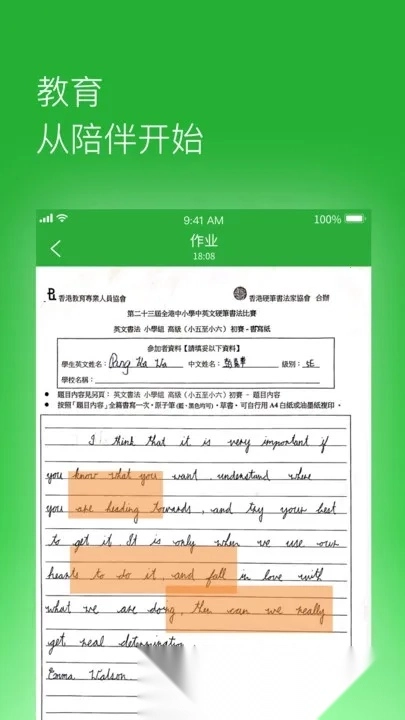 教育
从陪伴开始
9:41 AM
100%
作业
18:08
香港教育專業人員協會
香港硬筆書法家協會 合辦
第二十三屆全港中小學中英文硬筆書法比賽
英文書法 小學組 高級（小五至小六）初賽 - 書寫紙
參加者資料【請填妥以下資料】
學生英文姓名： Pang Ka Wa 中文姓名： 級別： 5E
學校名稱：
● 題目內容見另頁： 英文書法 小學組 高級（小五至小六）初賽 - 題目內容
● 按照「題目內容」全篇書寫一次。原子筆（藍、黑色均可）。草書。可自行用 A4 白紙或油墨紙複印。
I think that it is very important if
you know what you want, understand where
you are heading towards, and try your best
to get it. It is only when we use our
hearts to do it, and fall in love with
what we are doing, then can we really
get real determination.
Emma Watson